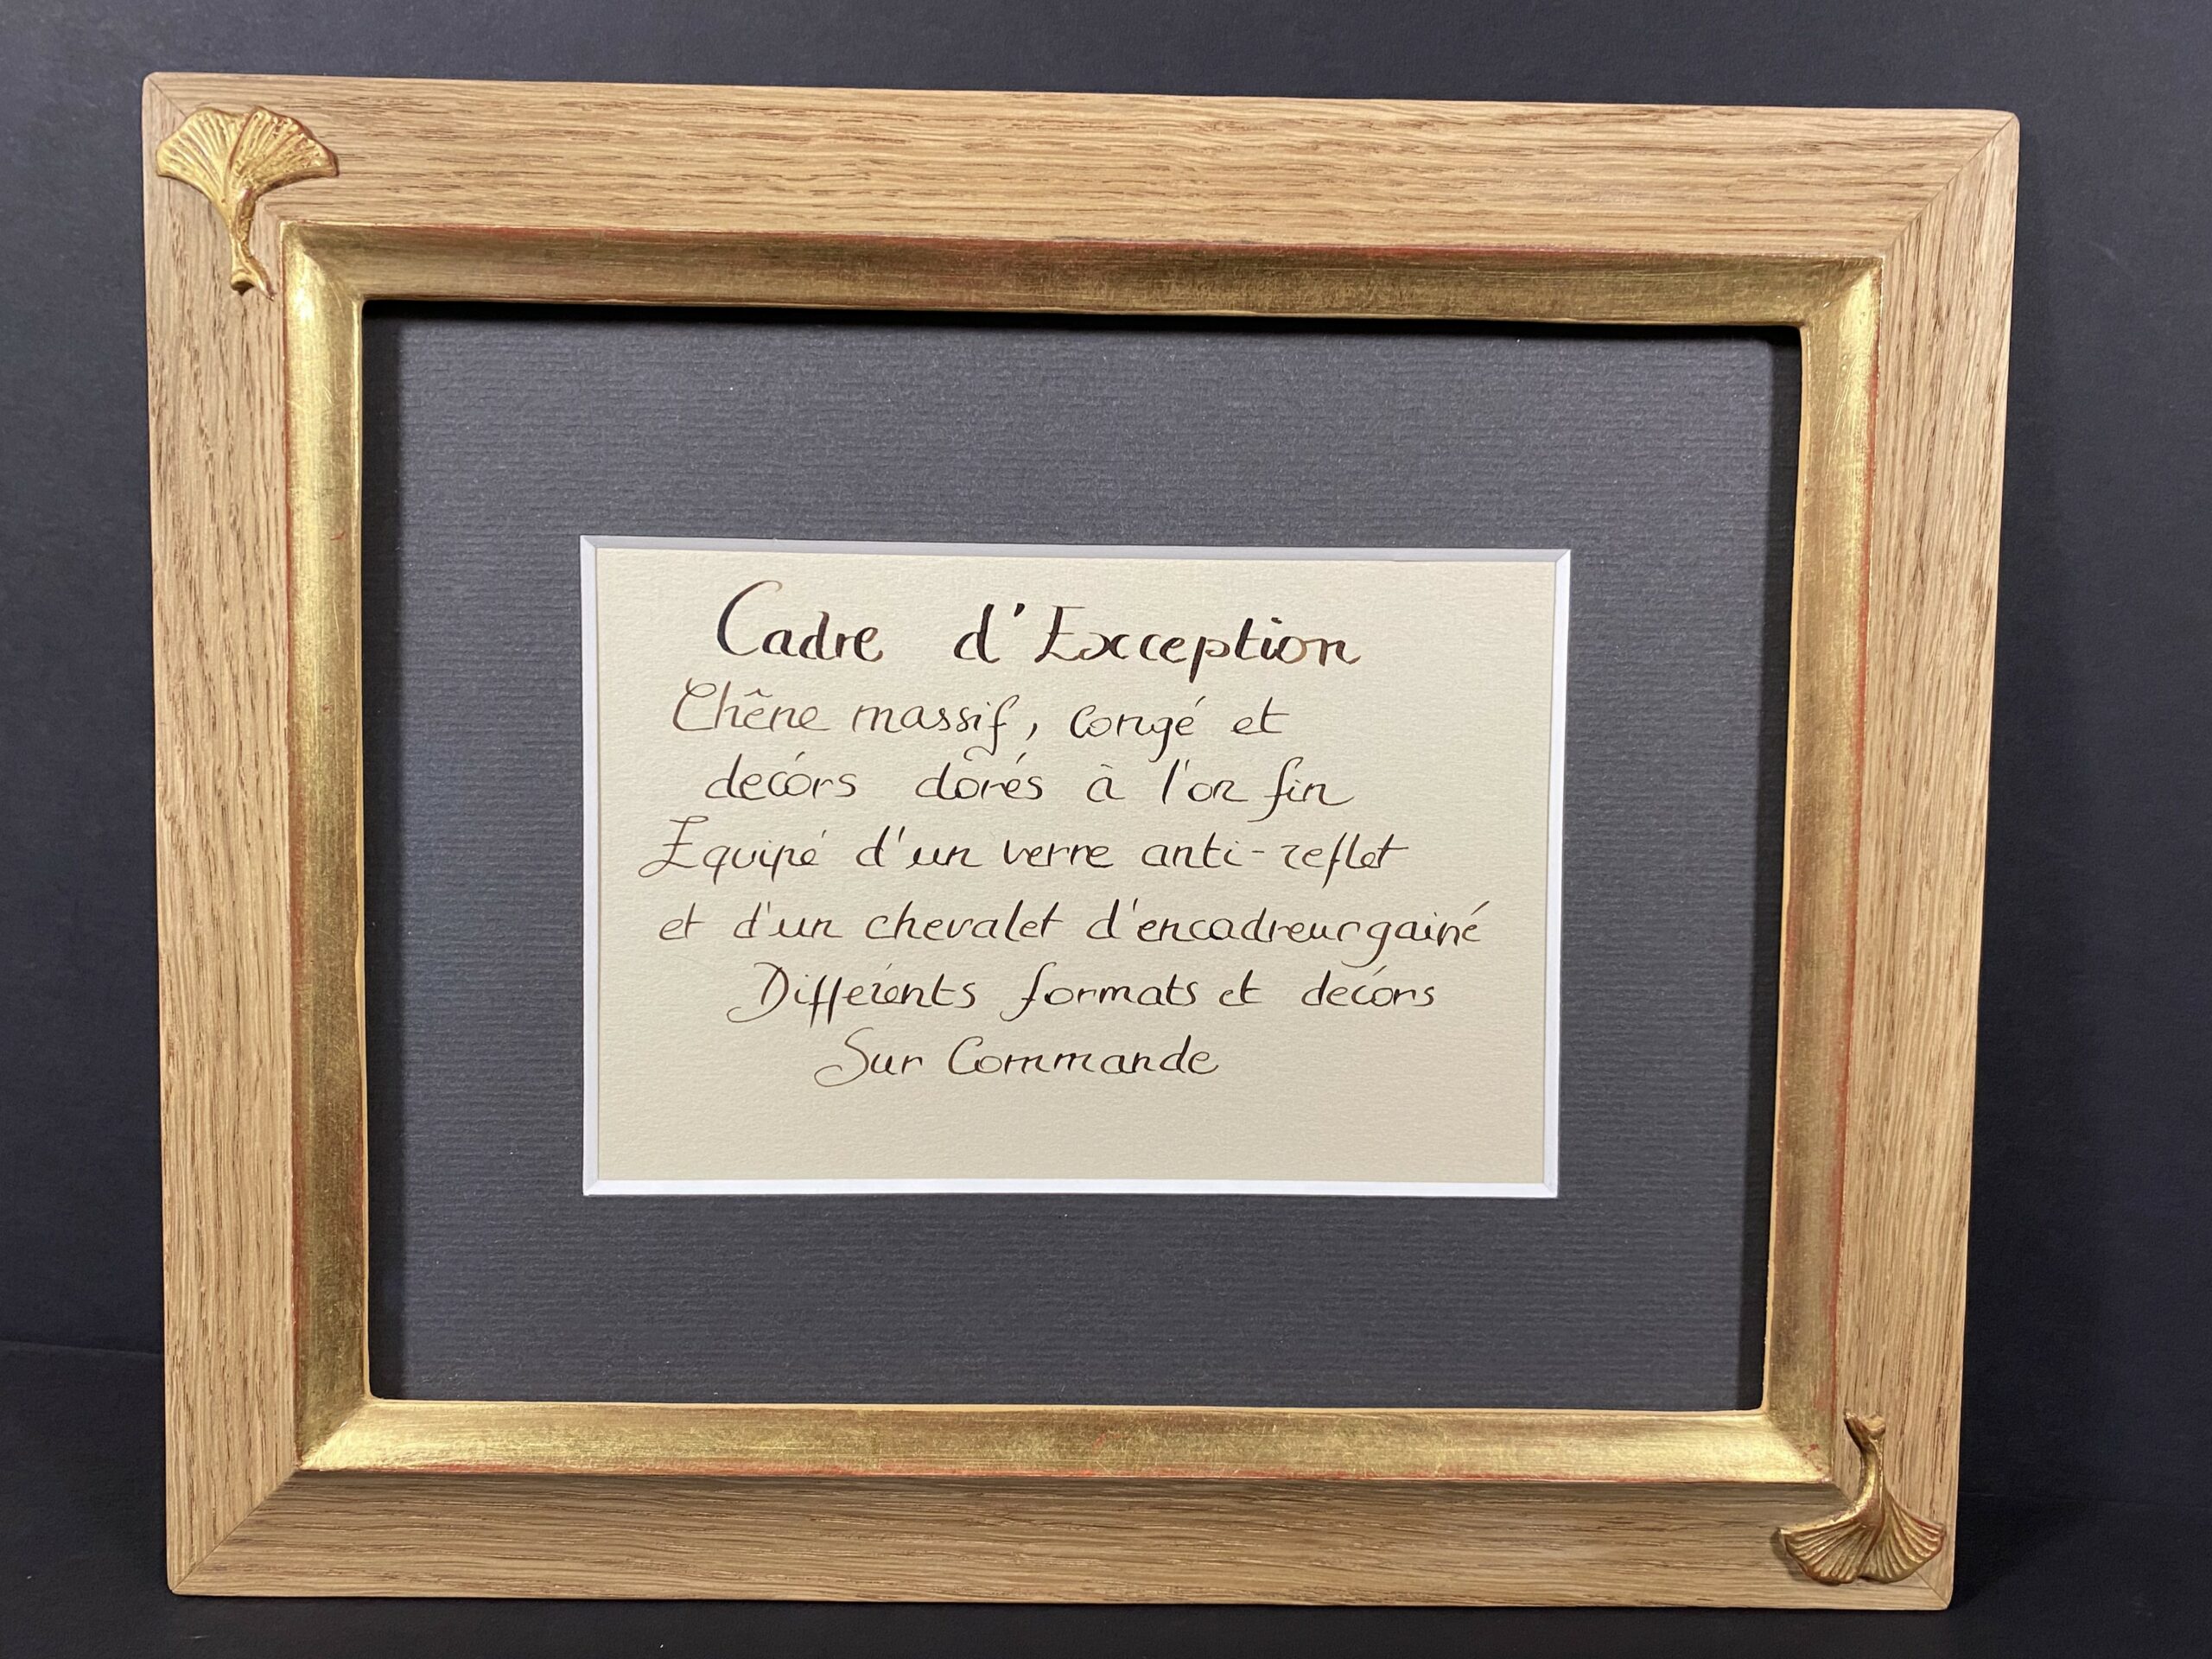 Cadre d'Exception
Chêne massif, congé et
decórs dôrés à l'or fin
Equipé d'un verre anti-reflet
et d'un chevalet d'encadreur gainé
Différents formats et decórs
Sur Commande